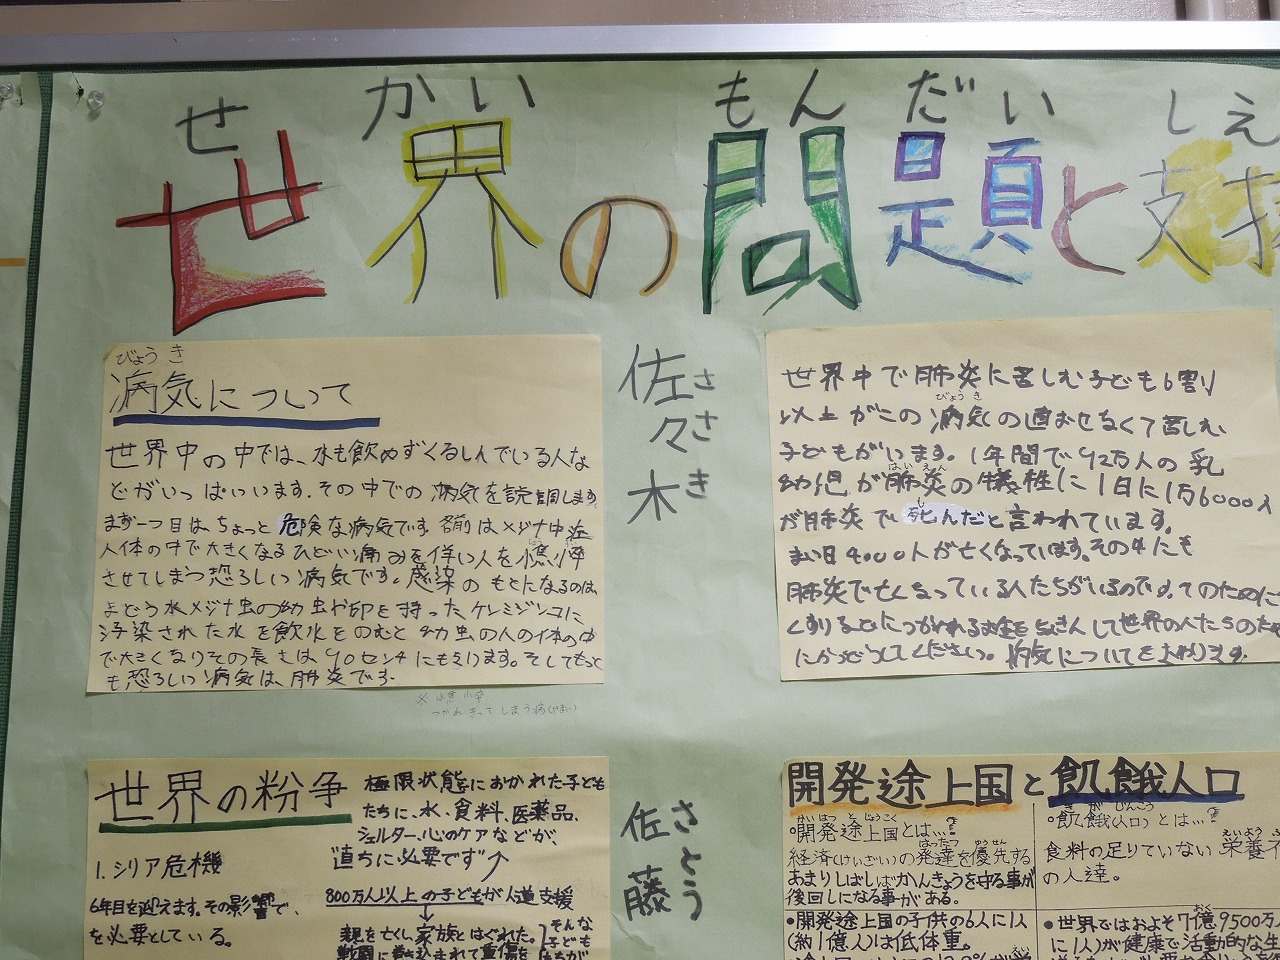 せ かい もんだい しえ
世界の問題と支援
びょうき
病気について
世界中の中では、水も飲めずくるしんでいる人な
どがいっぱいいます。その中での病気を説明します
まず一つ目はちょっと危険な病気です 名前はメジナ虫症
人体の中で大きくなるひどい痛みを伴い人を憔悴
させてしまう恐ろしい病気です。感染のもとになるのは、
水メジナ虫の幼虫や卵を持ったケンミジンコに
汚染された水を飲水をのむと幼虫の人の体の中
で大きくなりその長さは90センチにもなります。そしてもっと
も恐ろしい病気は肺炎です。
※憔悴
つかれきってしまう病(やまい)
佐々木
ささき
世界中で肺炎に苦しむ子ども6割
びょうき
以上がこの病気の直おせなくて苦しむ
子どもがいます。1年間で92万人の乳
はいえん
幼児が肺炎の犠牲に1日に1万6000人
し
が肺炎で死んだと言われています。
まい日4000人が亡くなっています。その4にも
肺炎で亡くなっている人たちがいるのです。そのために
くすりなどにつかわれるお金をちょきんして世界の人たちのため
にかつどうしてください。病気についてを終わります。
世界の紛争
1.シリア危機
6年目を迎えます。その影響で、
を必要としている。
極限状態におかれた子ども
たちに、水、食料、医薬品、
シェルター、心のケアなどが、
直ちに必要です
800万人以上の子どもが人道支援
親を亡くし家族とはぐれた。
戦闘に巻き込まれて重傷を
そんな
子ども
たちが
佐藤
さとう
開発途上国と飢餓人口
かいはつとじょうこく
・開発途上国とは…?
はったつ ゆうせん
経済(けいざい)の発達を優先する
あまりしばしばかんきょうを守る事が
後回しになる事がある。
・開発途上国の子供の6人に1人
(約1億人)は低体重。
きがじんこう
・飢餓(人口)とは…?
えいよう
食料の足りていない栄養不
の人達。
おく
・世界ではおよそ7億9500万人
に1人)が健康で活動的な生